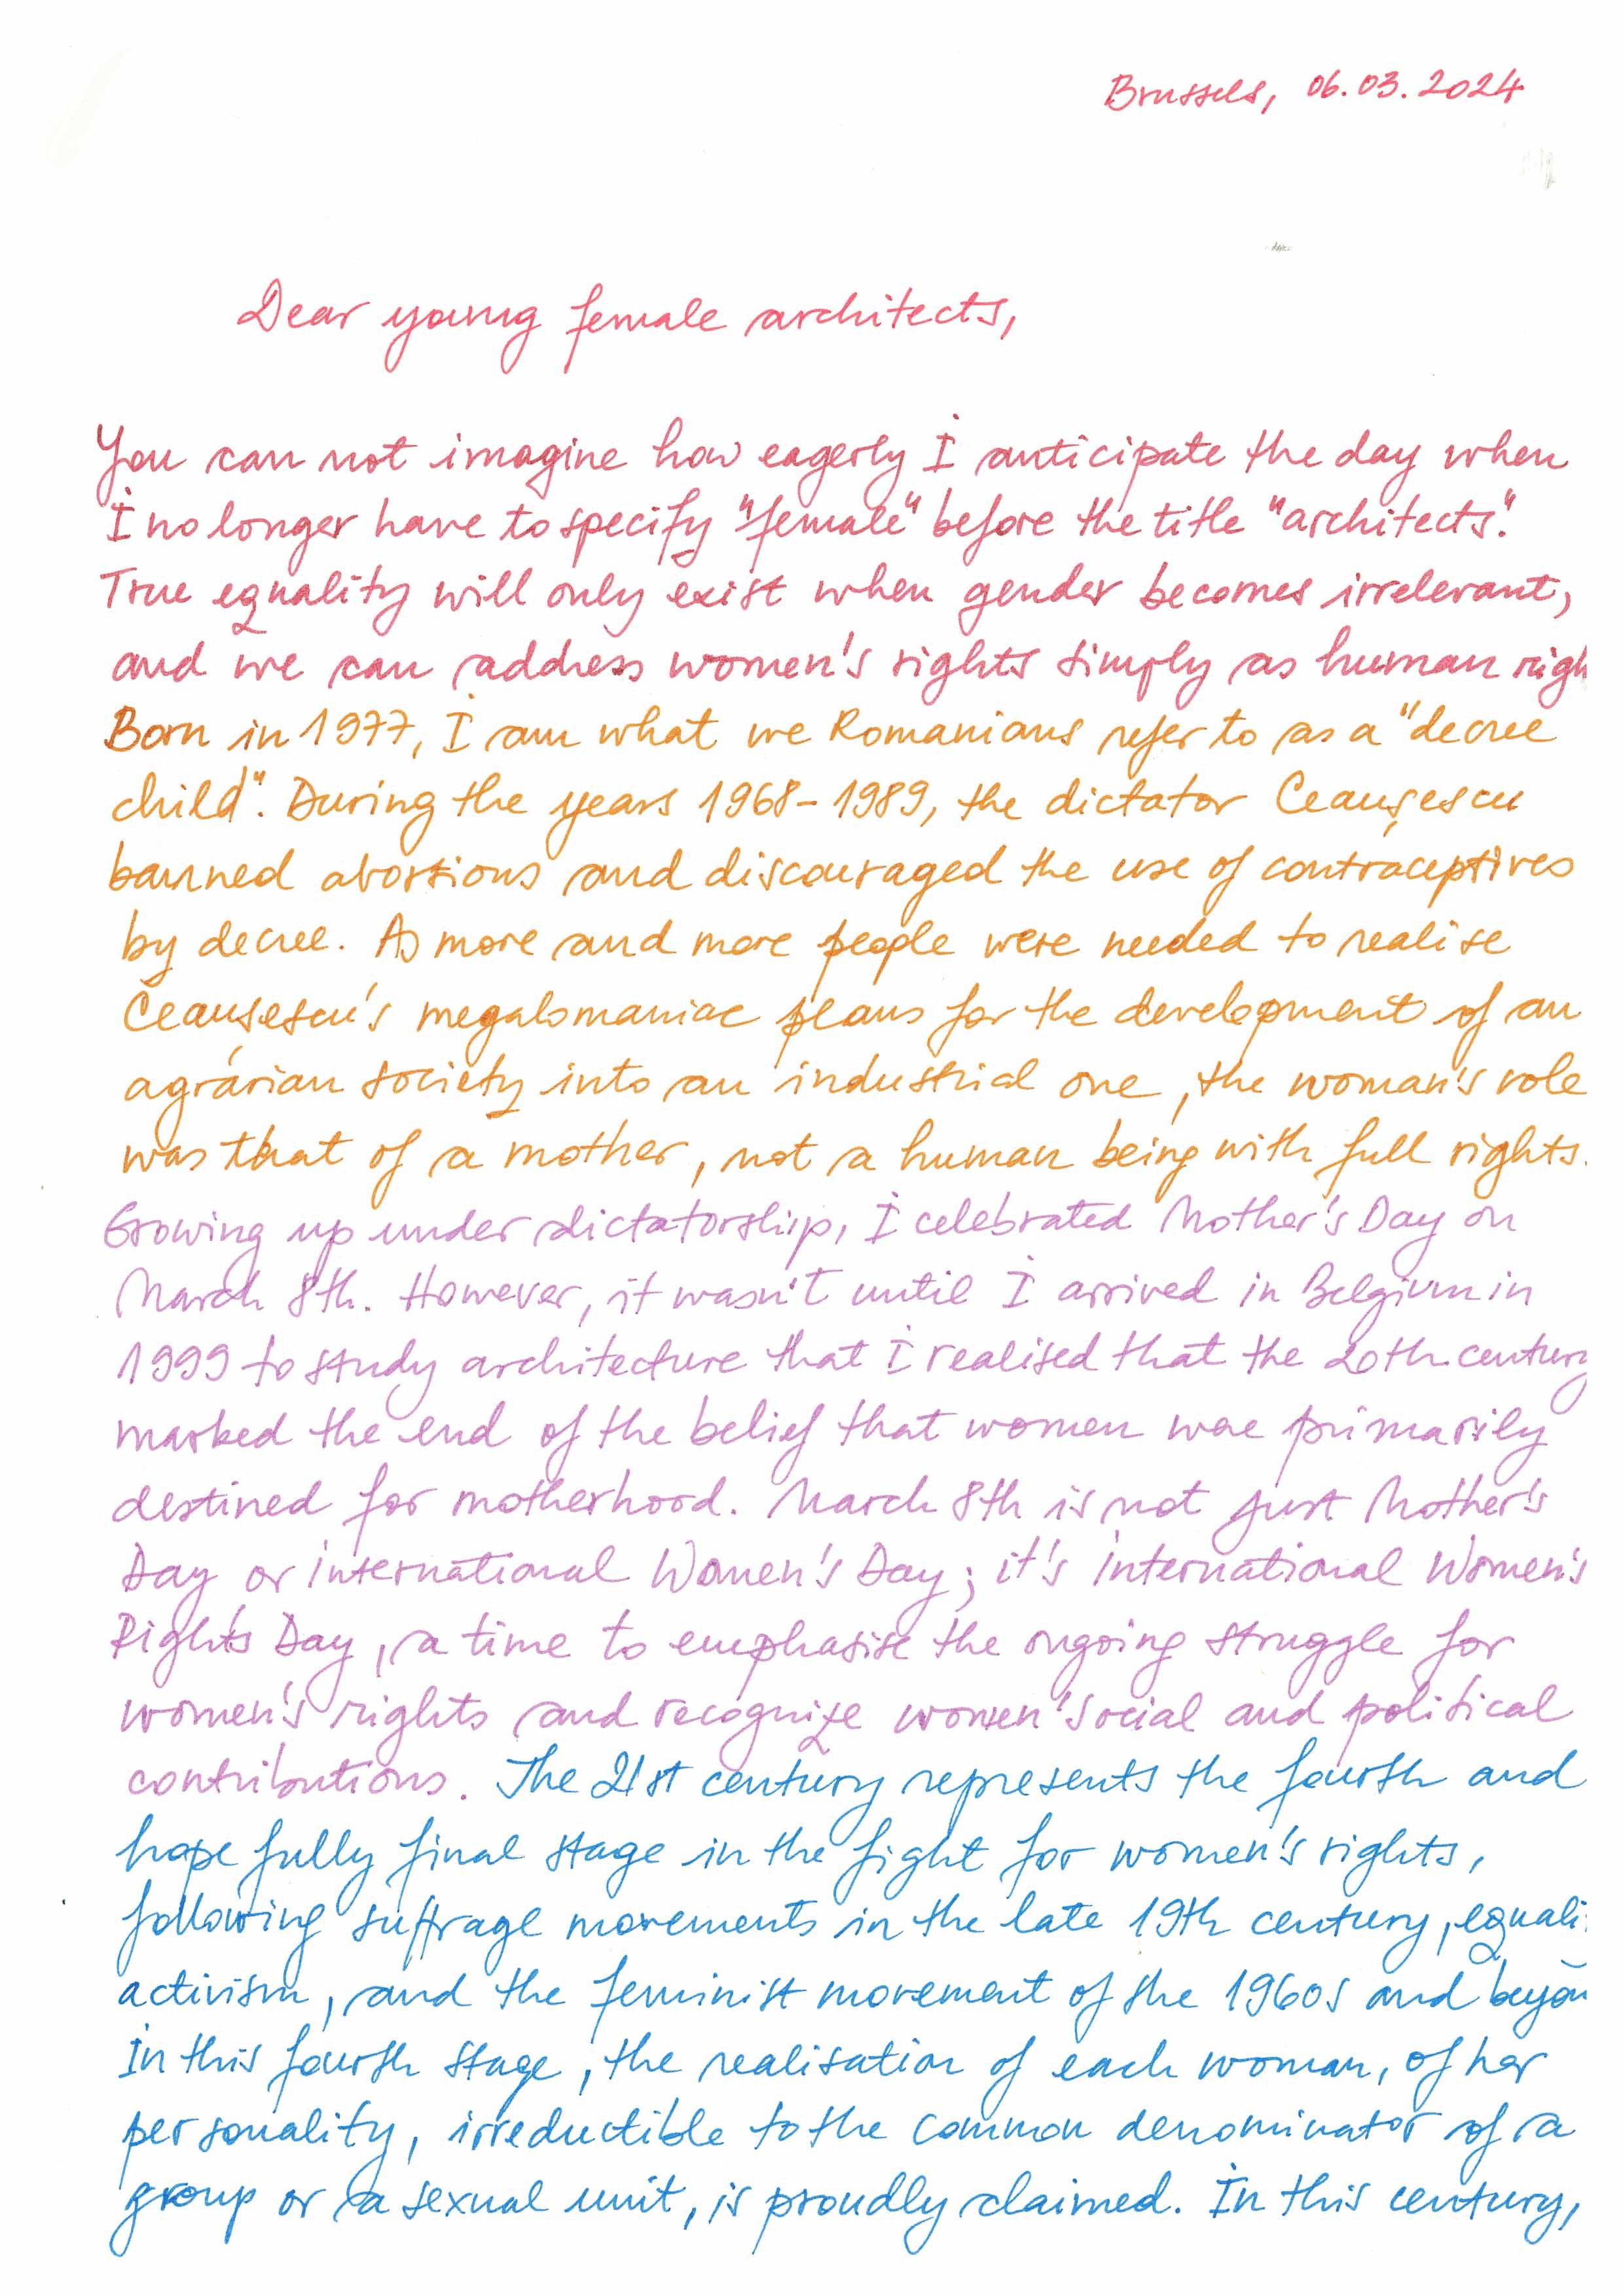 Brussels, 06.03.2024
Dear young female architects,
You can not imagine how eagerly I anticipate the day when
I no longer have to specify "female" before the title "architects".
True equality will only exist when gender becomes irrelevant,
and we can address women's rights simply as human righ
Born in 1977, I am what we Romanians refer to as a "decree
child". During the years 1968-1989, the dictator Ceaușescu
banned abortions and discouraged the use of contraceptives
by decree. As more and more people were needed to realise
Ceaușescu's megalomaniac plans for the development of an
agrarian society into an industrial one, the woman's role
was that of a mother, not a human being with full rights.
Growing up under dictatorship, I celebrated Mother's Day on
March 8th. However, it wasn't until I arrived in Belgium in
1999 to study architecture that I realised that the 20th century
marked the end of the belief that women were primarily
destined for motherhood. March 8th is not just Mother's
Day or International Women's Day; it's International Women's
Rights Day, a time to emphasise the ongoing struggle for
women's rights and recognize women's social and political
contributions. The 21st century represents the fourth and
hopefully final stage in the fight for women's rights,
following suffrage movements in the late 19th century, equali
activism, and the feminist movement of the 1960s and beyon
In this fourth stage, the realisation of each woman, of her
personality, irreductible to the common denominator of a
group or a sexual unit, is proudly claimed. In this century,